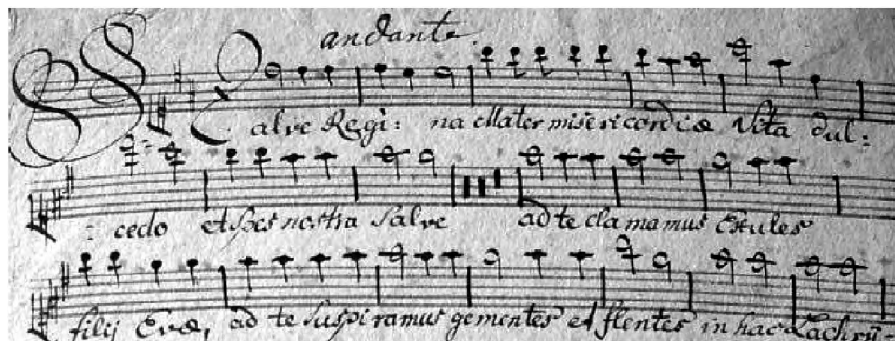 andante.
Salve Regi: na Mater misericordiæ Vita dul:
: cedo et spes nostra salve ad te clamamus Exules
filij Evæ, ad te suspiramus gementes et flentes in hac Lachry: